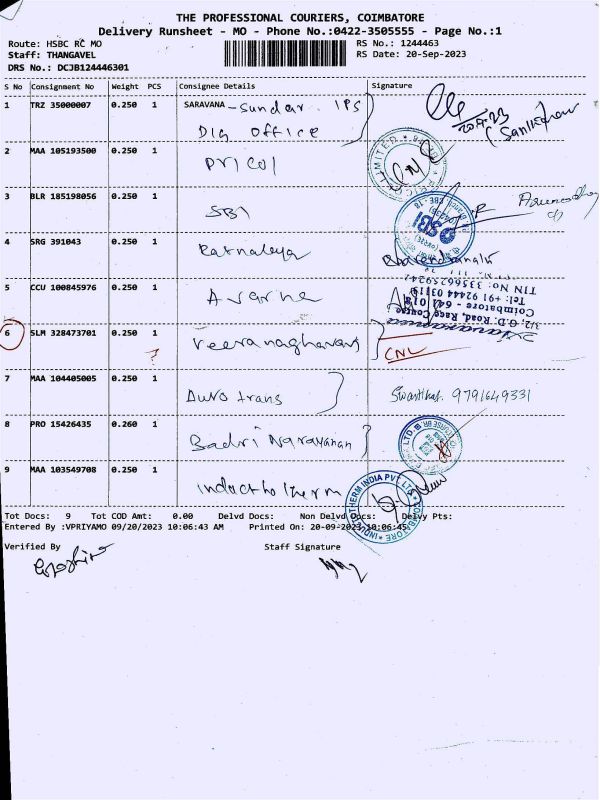 THE PROFESSIONAL COURIERS, COIMBATORE
Delivery Runsheet - MO - Phone No.:0422-3505555 - Page No.:1
Route: HSBC RC MO RS No.: 1244463
Staff: THANGAVEL RS Date: 20-Sep-2023
DRS No.: DCJB124446301
S No Consignment No Weight PCS Consignee Details Signature
1 TRZ 35000007 0.250 1 SARAVANA - Sundar. IPS
DIG Office
2 MAA 105193500 0.250 1 Pricol
3 BLR 185198056 0.250 1 SBI
4 SRG 391043 0.250 1 Ratnalaya
5 CCU 100845976 0.250 1
TIN NO: 33566259247
Tel: +91 92444 03119
Coimbatore - 641 018
3/2, G.D. Road, Race Course
6 SLM 328473701 0.250 1 Veeraraghavan CNL
?
7 MAA 104405005 0.250 1 Duro trans Swasthik. 9791649331
8 PRO 15426435 0.260 1 Badri Narayanan
9 MAA 103549708 0.250 1 Inductotherm
INDUCTOTHERM INDIA PVT LTS * COIMBATORE *
Tot Docs: 9 Tot COD Amt: 0.00 Delvd Docs: Non Delvd Docs: Delvy Pts:
Entered By :VPRIYAMO 09/20/2023 10:06:43 AM Printed On: 20-09-2023 10:06:45
Verified By Staff Signature